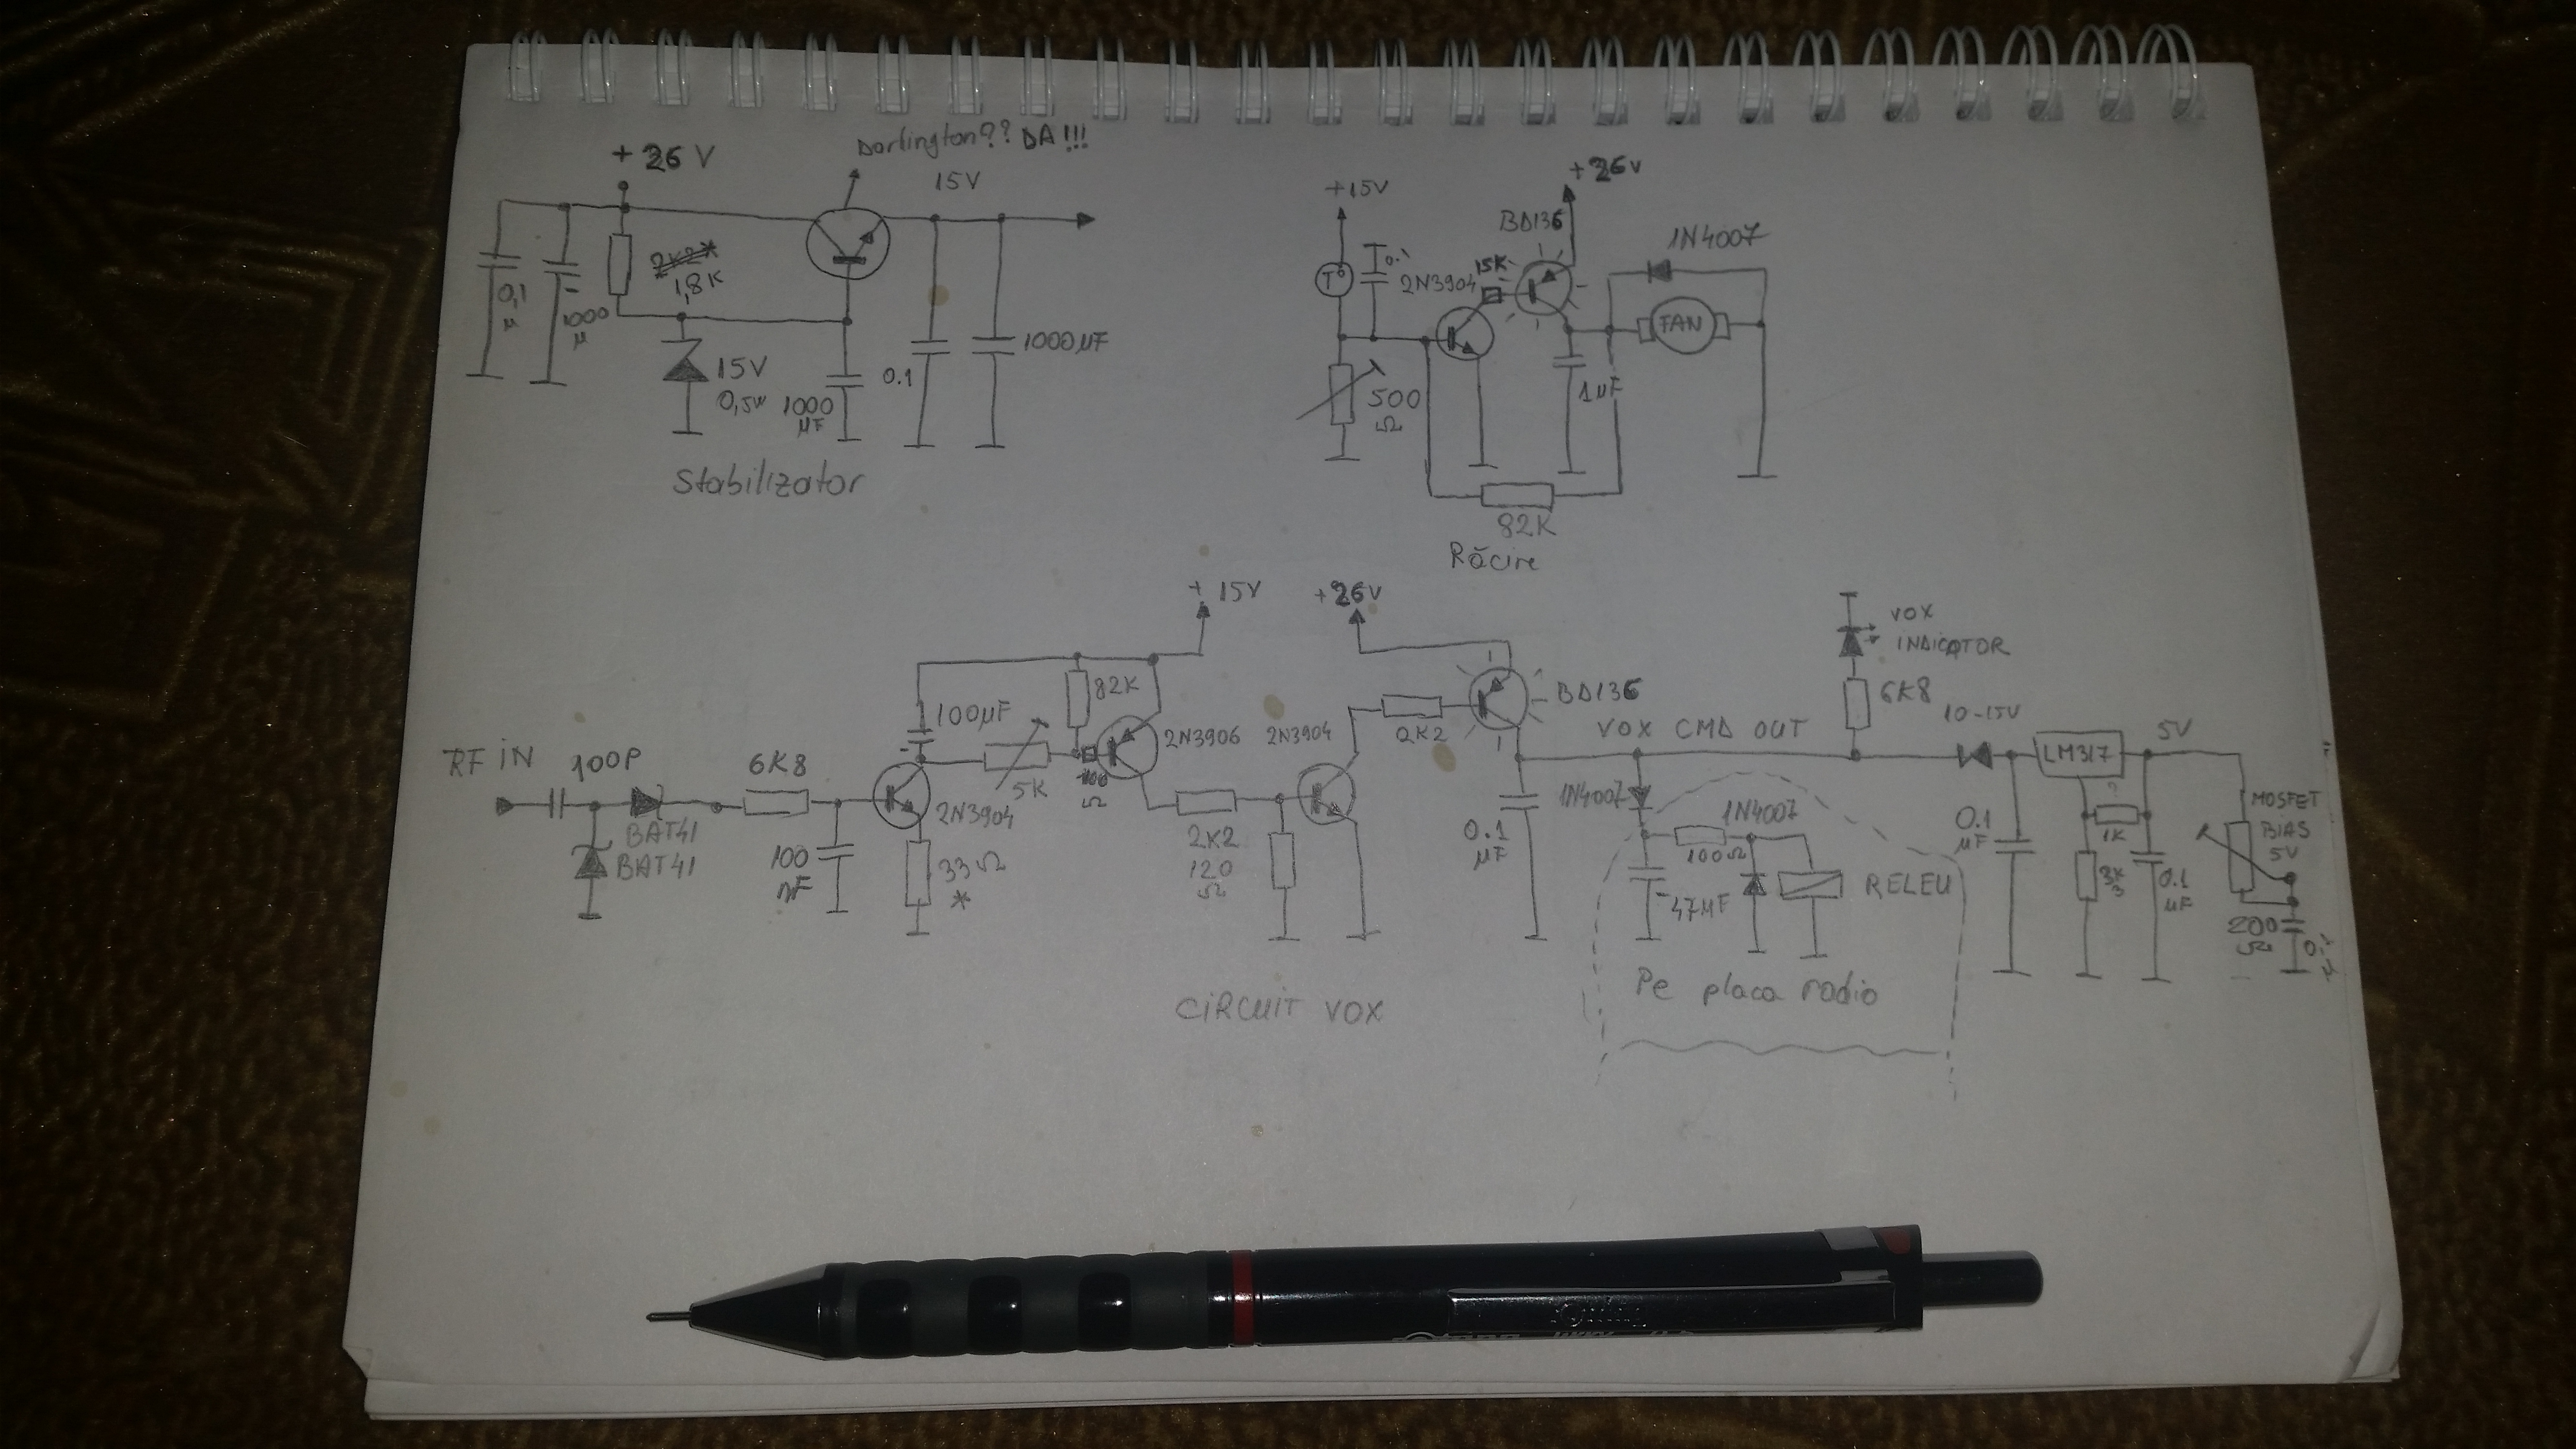 Darlington?? DA!!!
+ 26 V
15V
2K2*
1,8K
0,1
µ
1000
µ
15V
0,5W
1000
µF
0.1
1000µF
Stabilizator
+15V
+26V
BD136
1N4007
T°
0.1
2N3904
15K
FAN
500
Ω
1µF
82K
Răcire
+ 15V
+26V
VOX
INDICATOR
82K
100µF
2N3906
2N3904
BD136
6K8
VOX CMD OUT
10-15V
5V
RF IN
100P
6K8
5K
100
Ω
2K2
LM317
BAT41
BAT41
2N3904
100
nF
33Ω
*
2K2
120
Ω
0.1
µF
1N4007
1N4007
100Ω
47µF
RELEU
0.1
µF
1K
3K
3
0.1
µF
MOSFET
BIAS
5V
200
Ω
Pe placa radio
CIRCUIT VOX